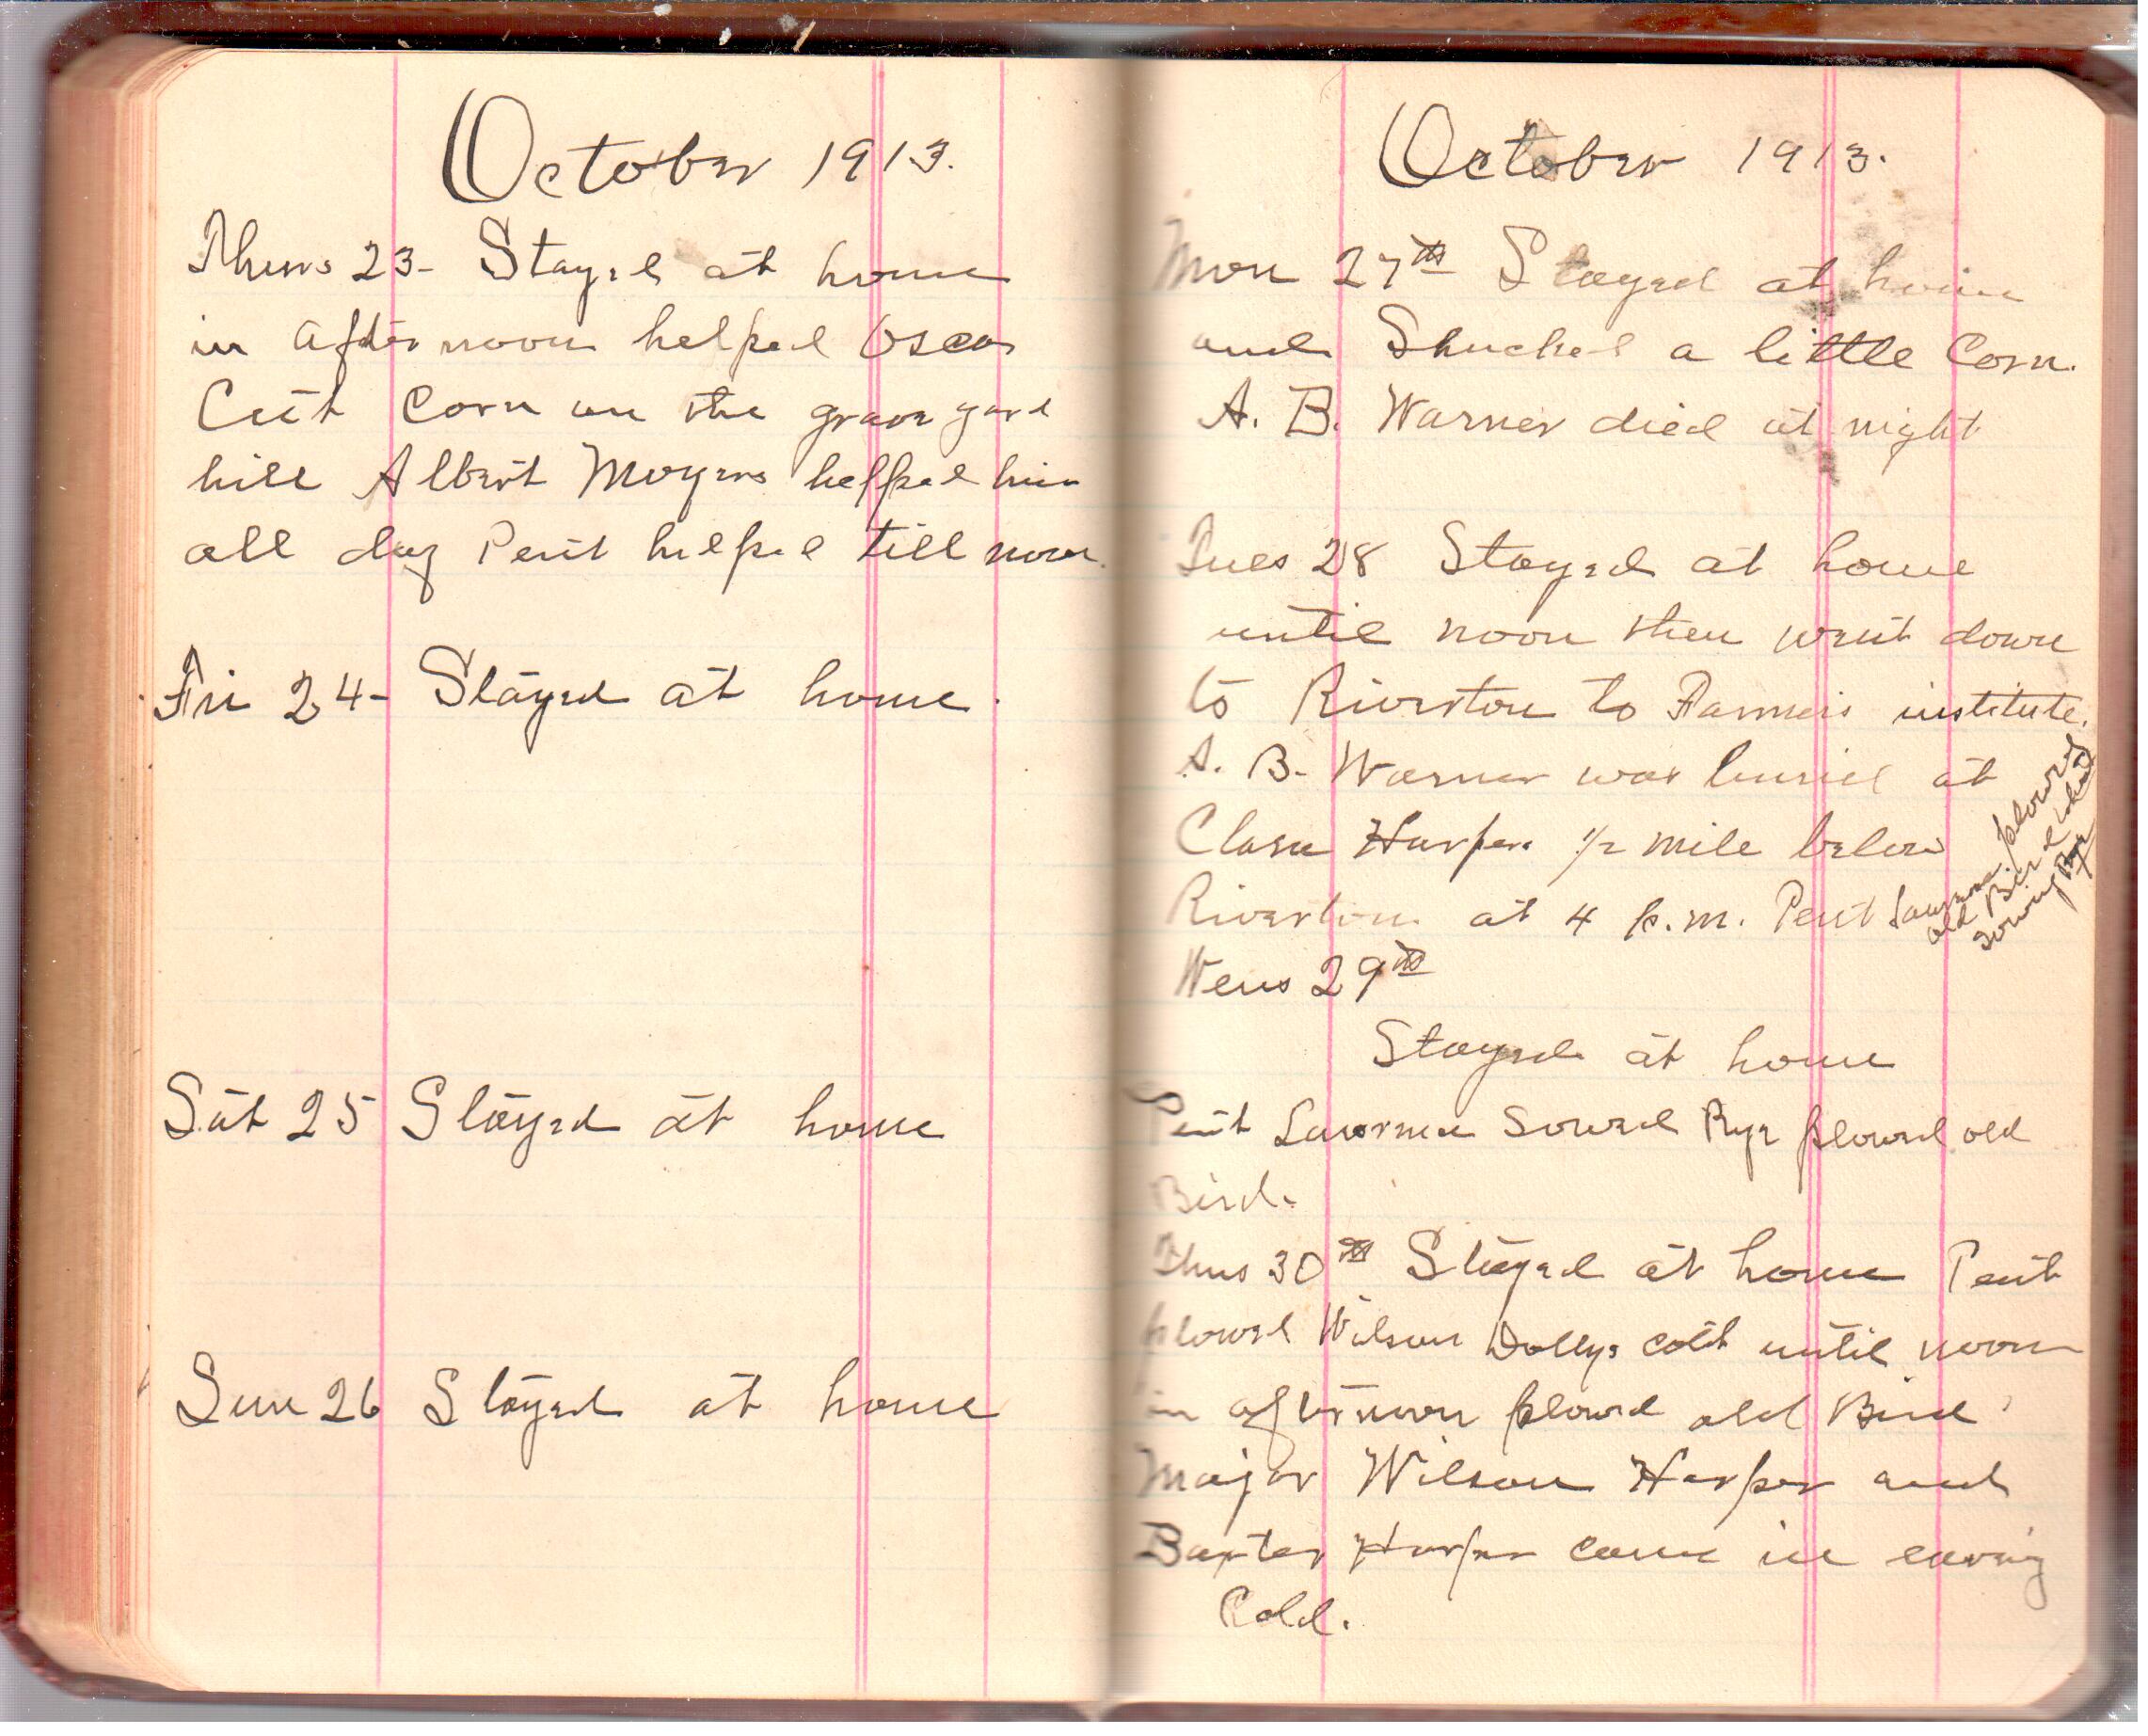 October 1913.
Thurs 23- Stayed at home
in afternoon helped Oscar
Cut Corn on the grave yard
hill Albert Moyers helped him
all day Pent helped till noon.
Fri 24- Stayed at home.
Sat 25 Stayed at home
Sun 26 Stayed at home
October 1913.
Mon 27th Stayed at home
and Shucked a little Corn.
A. B. Warner died at night
Tues 28 Stayed at home
until noon then went down
to Riverton to Farmers institute.
A. B. Warner was buried at
Harper 1/2 mile below
Riverton at 4 p.m. Pent
plowed
old Bird
sowing Rye
Wens 29th
Stayed at home
Pent sowed Rye plowed old
Bird.
Thus 30th Stayed at home Pent
plowed Wilson Dollys colt until noon
in afternoon plowed old Bird
Major Wilson Harper and
Baxter Harper came in evning
Cold.